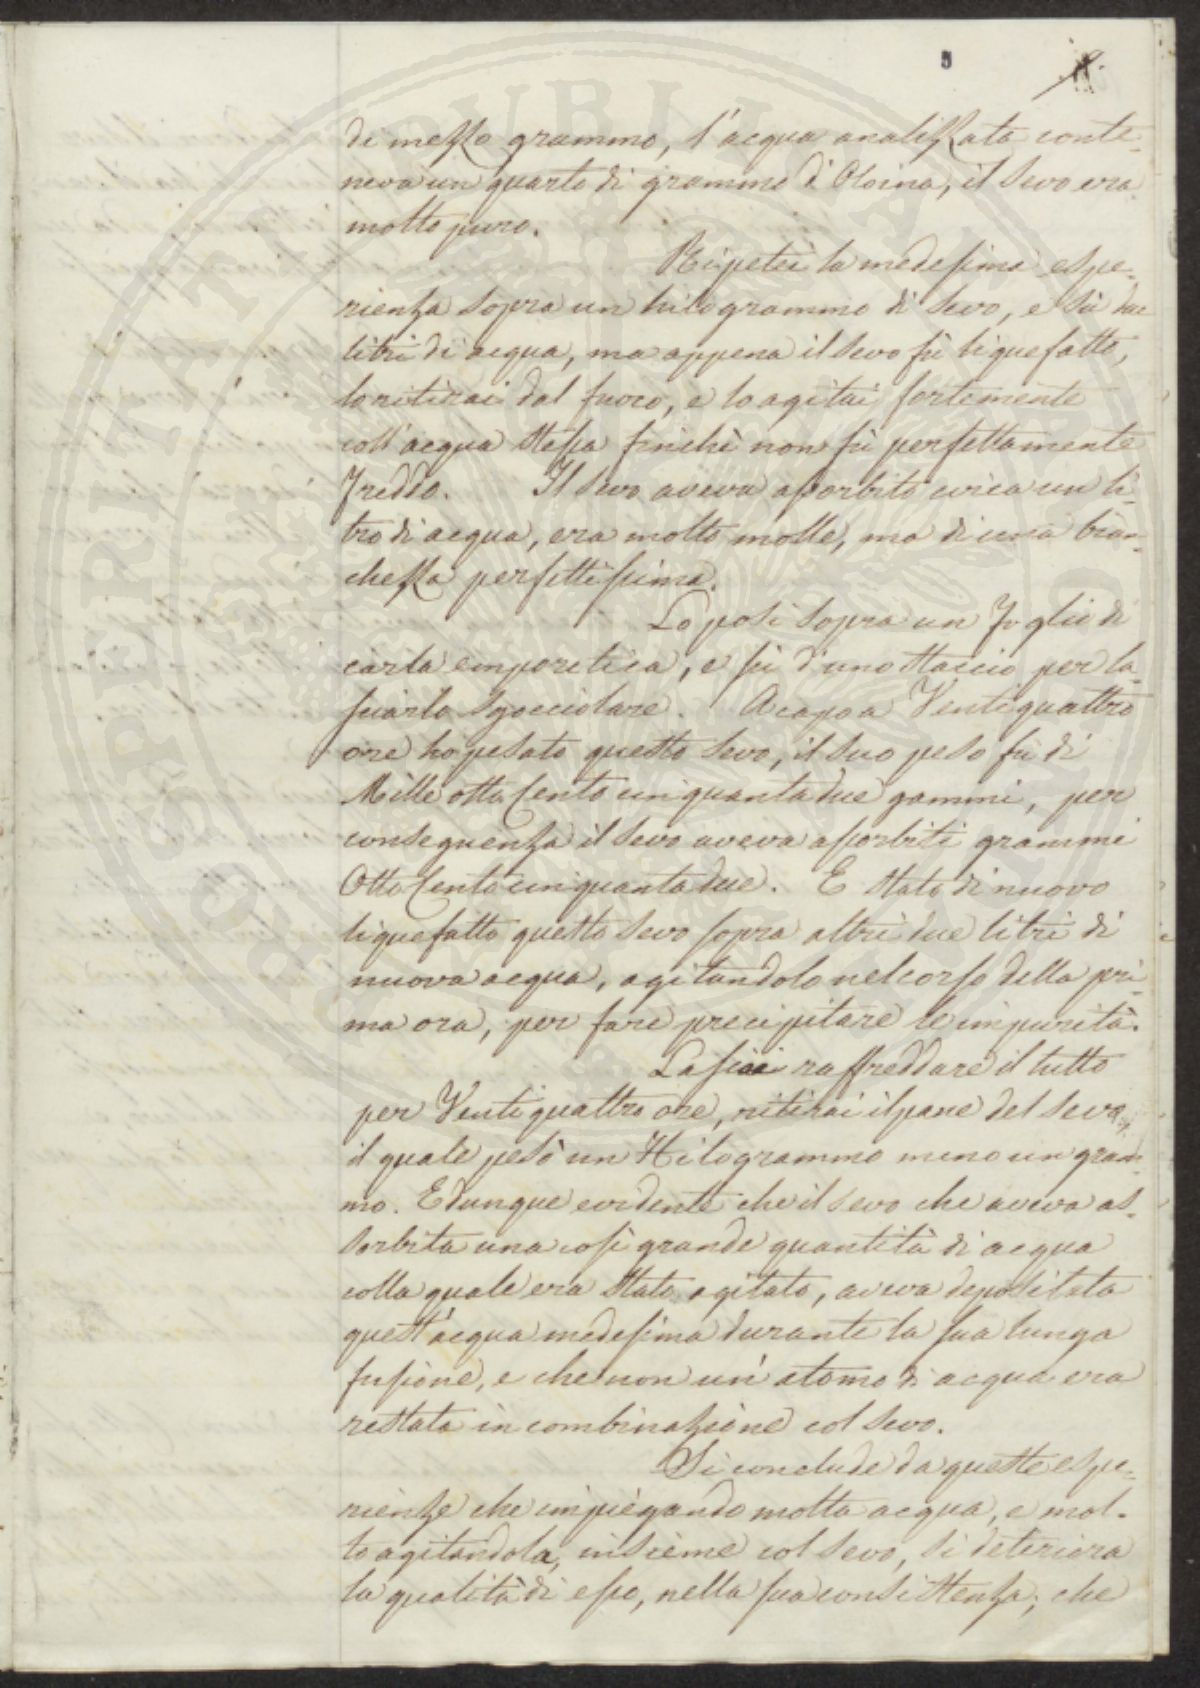 5
di mezzo grammo, l'acqua analizzata conte-
neva un quarto di grammo d'Oloina, il Sevo era
molto puro.
Ripetei la medesima espe-
rienza sopra un kilogrammo di Sevo, e sù due
litri di acqua, ma appena il sevo fù liquefatto,
lo ritirai dal fuoco, e lo agitai fortemente
coll'acqua stessa finchè non fù perfettamente
freddo. Il Sevo aveva assorbito circa un li-
tro di acqua, era molto molle, ma di una bian-
chezza perfettissima.
Lo posi sopra un foglio di
carta emporetica, e sù d'uno staccio per la-
sciarlo sgocciolare. A capo a Ventiquattro
ore ho pesato questo Sevo, il suo peso fù di
Mille otto Cento cinquantadue gammi, per
conseguenza il Sevo aveva assorbiti grammi
Otto Cento cinquantadue. E stato di nuovo
liquefatto questo Sevo sopra altri due litri di
nuova acqua, agitandolo nel corso della pri-
ma ora, per fare precipitare le impurità.
Lasciai raffreddare il tutto
per Ventiquattro ore, ritirai il pane del Sevo,
il quale pesò un Kilogrammo meno un gram-
mo. E dunque evidente che il Sevo che aveva as-
sorbita una così grande quantità di acqua
colla quale era stato agitato, aveva depositata
quest'acqua medesima durante la sua lunga
fusione, e che non un'atomo di acqua era
restata in combinazione col Sevo.
Si conclude da queste espe-
rienze che impiegando molta acqua, e mol-
to agitandola, insieme col Sevo, si deteriora
la qualità di esso, nella sua consistenza; che
PROSPERITATI PUBLICAE